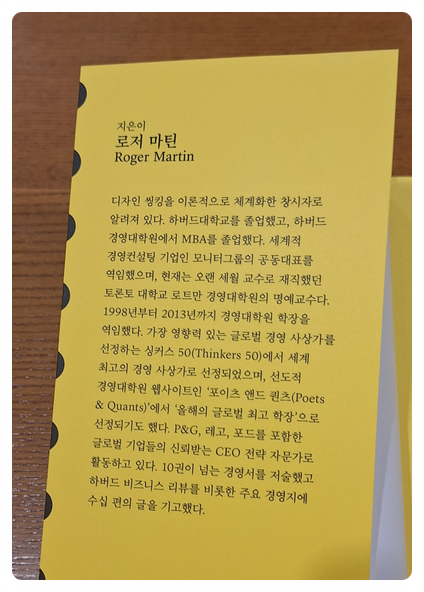 지은이
로저 마틴
Roger Martin
디자인 씽킹을 이론적으로 체계화한 창시자로
알려져 있다. 하버드대학교를 졸업했고, 하버드
경영대학원에서 MBA를 졸업했다. 세계적
경영컨설팅 기업인 모니터그룹의 공동대표를
역임했으며, 현재는 오랜 세월 교수로 재직했던
토론토 대학교 로트만 경영대학원의 명예교수다.
1998년부터 2013년까지 경영대학원 학장을
역임했다. 가장 영향력 있는 글로벌 경영 사상가를
선정하는 싱커스 50(Thinkers 50)에서 세계
최고의 경영 사상가로 선정되었으며, 선도적
경영대학원 웹사이트인 ‘포이츠 앤드 퀀츠(Poets
& Quants)’에서 ‘올해의 글로벌 최고 학장’으로
선정되기도 했다. P&G, 레고, 포드를 포함한
글로벌 기업들의 신뢰받는 CEO 전략 자문가로
활동하고 있다. 10권이 넘는 경영서를 저술했고
하버드 비즈니스 리뷰를 비롯한 주요 경영지에
수십 편의 글을 기고했다.